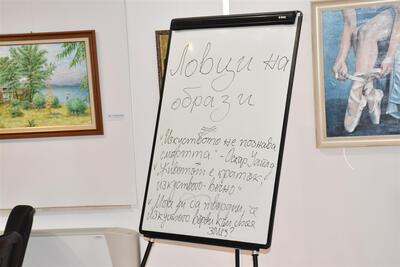 Ловци на
образи
"Изкуството не познава
смъртта" - Оскар Уайлд
"Животът е кратък,
изкуството - вечно"
"Мога ли да твърдя, че
изкуството върви към своя